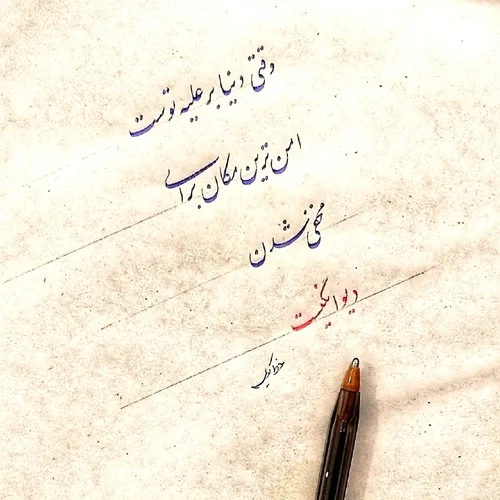 وقتی دنیا بر علیه توست
امن ترین مکان برای
مخفی شدن
دیوانگیست
خط